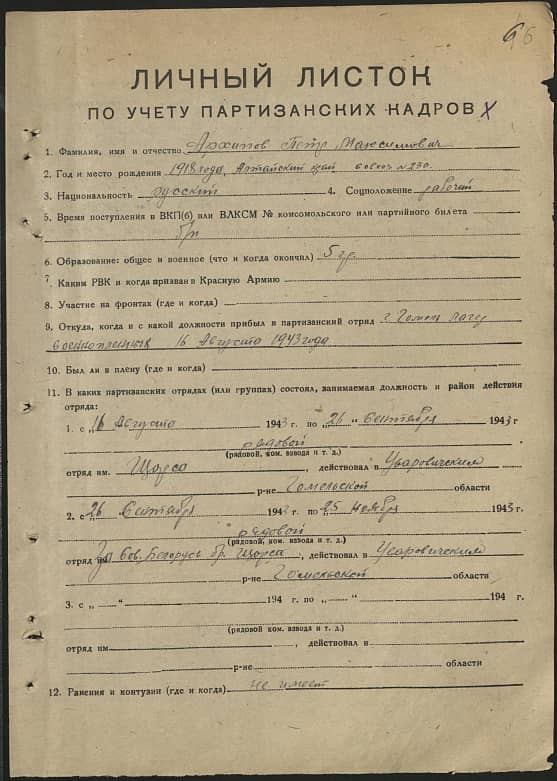 66
ЛИЧНЫЙ ЛИСТОК
ПО УЧЕТУ ПАРТИЗАНСКИХ КАДРОВ
1. Фамилия, имя и отчество Архипов Петр Максимович
2. Год и место рождения 1918 года, Алтайский край, совхоз №230.
3. Национальность русский 4. Соцположение рабочий
5. Время поступления в ВКП(б) или ВЛКСМ № комсомольского или партийного билета
б/п
6. Образование: общее и военное (что и когда окончил) 5 гр.
7. Каким РВК и когда призван в Красную Армию
8. Участие на фронтах (где и когда)
9. Откуда, когда и с какой должности прибыл в партизанский отряд г. Гомель лагер
военнопленных 16 Августа 1943 года
10. Был ли в плену (где и когда)
11. В каких партизанских отрядах (или группах) состоял, занимаемая должность и район действия
отряда:
1. с „16 Августа 1943 г. по „26" Сентября 1943 г
рядовой
(рядовой, ком. взвода и т. д.)
отряд им. Щорса, действовал в Уваровичским
р-не Гомельской области
2. с „26 Сентября 1943 г. по „25 Ноября 1943 г.
рядовой
(рядовой, ком. взвода и т. д.)
отряд За Сов. Белорусь бр. Щорса, действовал в Уваровичским
р-не Гомельской области
3. с „ — " 194 г. по „ — " 194 г.
(рядовой, ком. взвода и т. д.)
отряд им. , действовал в
р-не области
12. Ранения и контузии (где и когда) не имеет